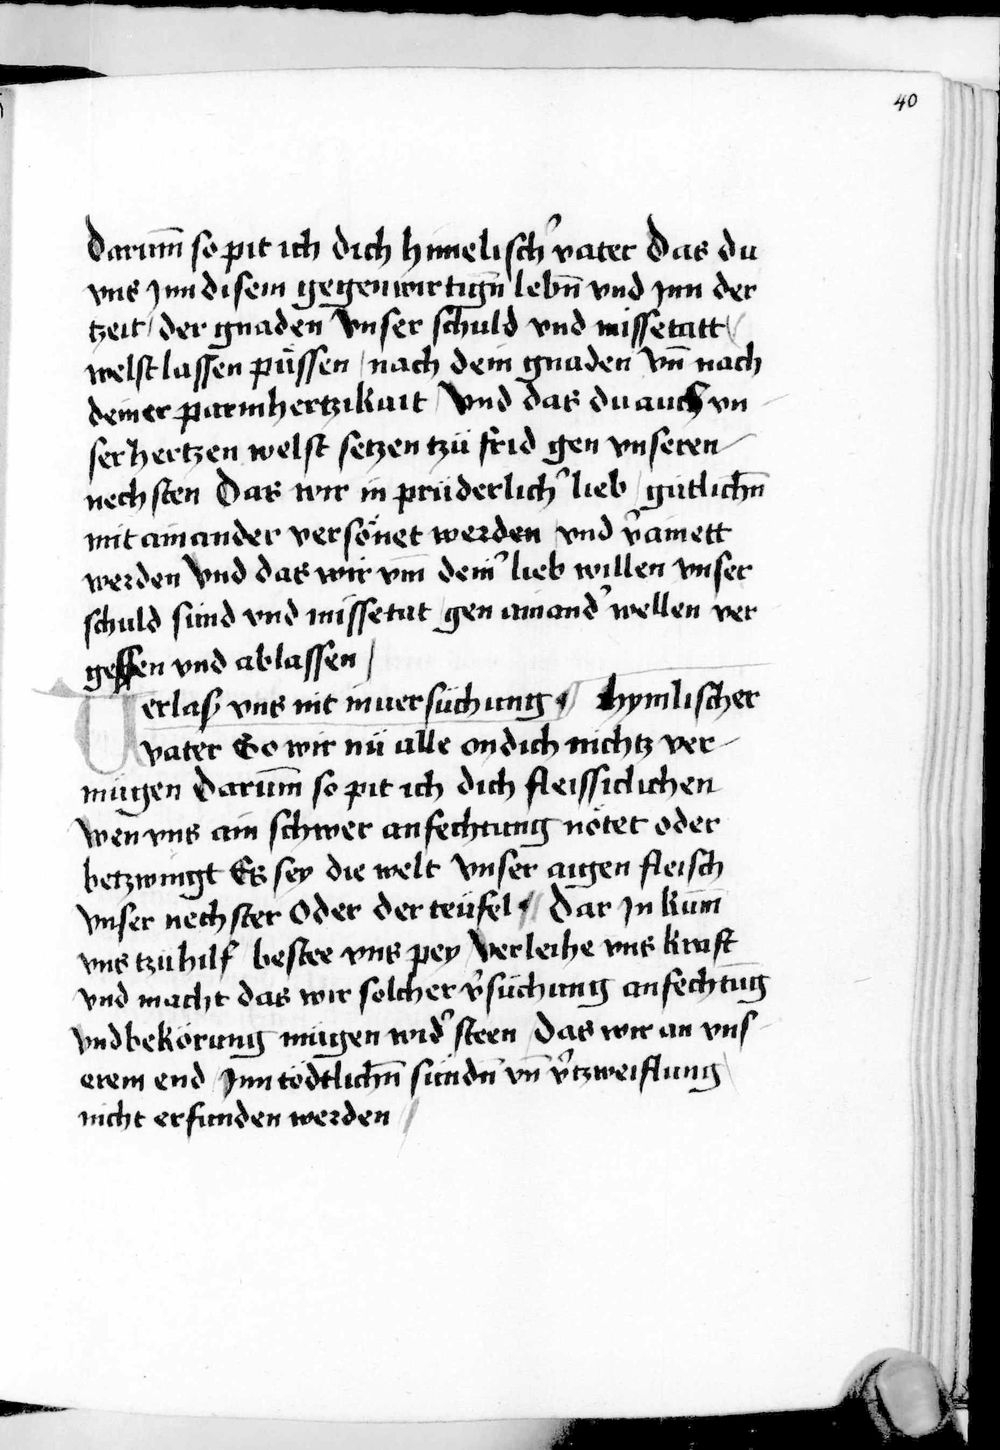 40
Darum̄ so pit ich dich himelisch᾽ vater Das du
vns Jnn disem gegenwirtigñ lebñ vnd Jnn der
tzeit / der gnaden Vnser schuld vnd missetatt /
welst lassen püssen / nach dein gnaden Vñ nach
deiner parmhertzikait / Vnd das du auch vn
ser hertzen welst setzen tzü frid gen vnseren
nechsten Das wir in prüderlich᾽ lieb / gütlichñ
mit ainander versönet werden / vnd v᾽ainett
werden Vnd das wir vm̄ dein᾽ lieb willen vnser
schuld sünd vnd missetat / gen ainand᾽ wellen ver
gessen vnd ablassen /
Verlaß vns nit inuersüchung ¶ hymlischer
vater So wir nü alle on dich nichtz ver
mügen Darum̄ so pit ich dich fleissiclichen
Wen vns ain schwer anfechtung nötet oder
betzwingt Es sey die welt Vnser aigen fleisch
Vnser nechster Oder der teüfel // Dar Jn kum̄
vns tzü hilf bestee vns pey / Verleihe vns kraft
vnd macht das wir solcher v᾽süchung anfechtūg
Vnd bekörung mügen wid᾽ steen / Das wir an vns
erem end / Jnn tödtlichñ sündñ vñ v᾽tzweiflung /
nicht erfunden werden //